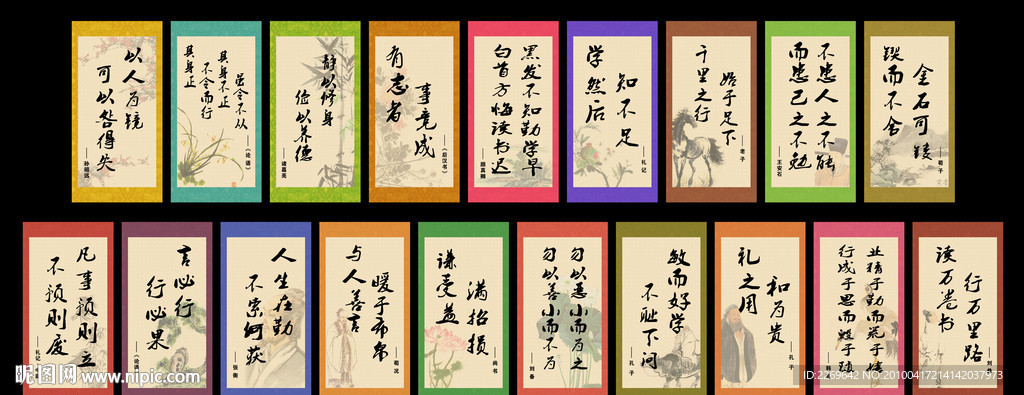 以人为镜
可以咎得失
其身正
不令而行
其身不正
虽令不从
——《论语》
静以修身
俭以养德
——诸葛亮
有志者
事竟成
——《后汉书》
黑发不知勤学早
白首方悔读书迟
——颜真卿
学然后
知不足
——礼记
千里之行
始于足下
——老子
不患人之不能
而患己之不勉
——王安石
锲而不舍
金石可镂
——荀子
凡事预则立
不预则废
——礼记
言必行
行必果
——《论语
人生在勤
不索何获
——张衡
与人善言
暖于布帛
——荀况
谦受益
满招损
——尚书
勿以恶小而为之
勿以善小而不为
——刘备
敏而好学
不耻下问
——孔子
礼之用
和为贵
——孔子
业精于勤而荒于嬉
行成于思而毁于随
读万卷书
行万里路
——刘
昵图网 www.nipic.com
ID:2269642 NO:20100417214142037973